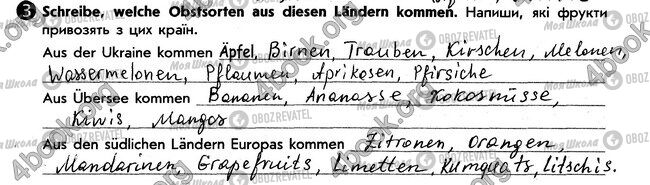 3 Schreibe, welche Obstsorten aus diesen Ländern kommen. Напиши, які фрукти
привозять з цих країн.
Aus der Ukraine kommen Äpfel, Birnen, Trauben, Kirschen, Melonen,
Wassermelonen, Pflaumen, Aprikosen, Pfirsiche
Aus Übersee kommen Bananen, Ananasse, Kokosnüsse,
Kiwis, Mangos
Aus den südlichen Ländern Europas kommen Zitronen, Orangen,
Mandarinen, Grapefruits, Limetten, Kumquats, Litschis.